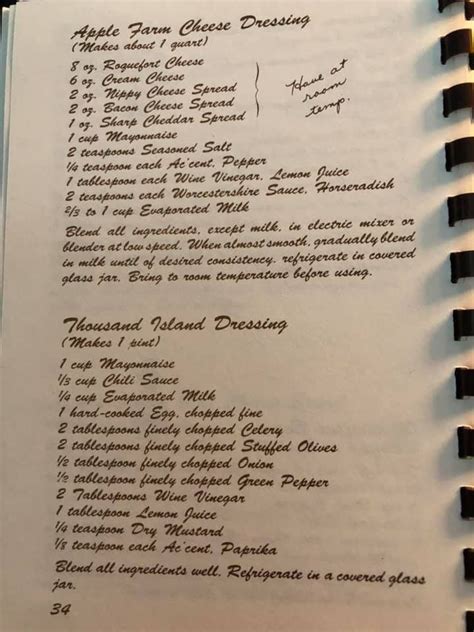 Apple Farm Cheese Dressing
(Makes about 1 quart)
8 oz. Roquefort Cheese
6 oz. Cream Cheese
2 oz. Nippy Cheese Spread
2 oz. Bacon Cheese Spread
1 oz. Sharp Cheddar Spread
Have at
room
temp.
1 cup Mayonnaise
2 teaspoons Seasoned Salt
¼ teaspoon each Ac'cent, Pepper
1 tablespoon each Wine Vinegar, Lemon Juice
2 teaspoons each Worcestershire Sauce, Horseradish
⅔ to 1 cup Evaporated Milk
Blend all ingredients, except milk, in electric mixer or
blender at low speed. When almost smooth, gradually blend
in milk until of desired consistency. refrigerate in covered
glass jar. Bring to room temperature before using.
Thousand Island Dressing
(Makes 1 pint)
1 cup Mayonnaise
⅓ cup Chili Sauce
¼ cup Evaporated Milk
1 hard-cooked Egg, chopped fine
2 tablespoons finely chopped Celery
2 tablespoons finely chopped Stuffed Olives
½ tablespoon finely chopped Onion
½ tablespoon finely chopped Green Pepper
2 Tablespoons Wine Vinegar
1 tablespoon Lemon Juice
¼ teaspoon Dry Mustard
⅛ teaspoon each Ac'cent, Paprika
Blend all ingredients well. Refrigerate in a covered glass
jar.
34